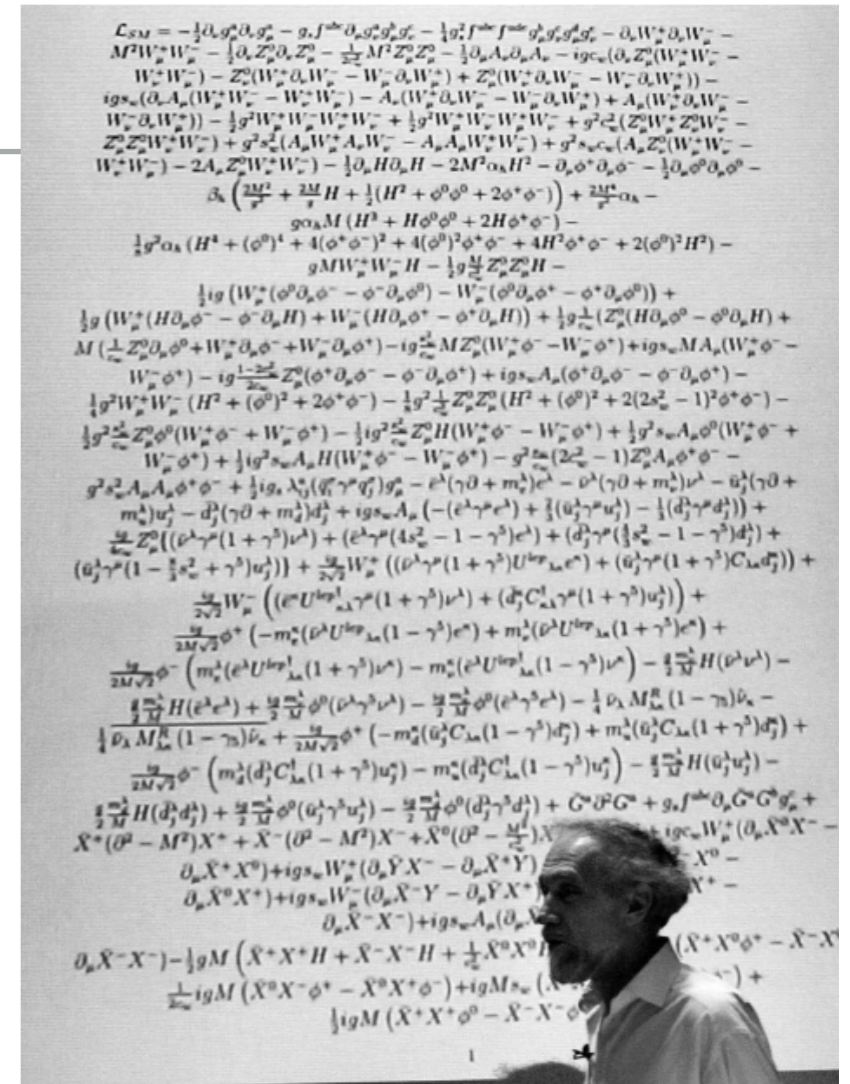 ℒ_SM = −½∂_νg^a_μ∂_νg^a_μ − g_s f^abc ∂_μg^a_νg^b_μg^c_ν − ¼g²_s f^abc f^ade g^b_μg^c_νg^d_μg^e_ν − ∂_νW⁺_μ∂_νW⁻_μ −
M²W⁺_μW⁻_μ − ½∂_νZ⁰_μ∂_νZ⁰_μ − 1/(2c²_w) M²Z⁰_μZ⁰_μ − ½∂_μA_ν∂_μA_ν − igc_w(∂_νZ⁰_μ(W⁺_μW⁻_ν −
W⁺_νW⁻_μ) − Z⁰_ν(W⁺_μ∂_νW⁻_μ − W⁻_μ∂_νW⁺_μ) + Z⁰_μ(W⁺_ν∂_νW⁻_μ − W⁻_ν∂_νW⁺_μ)) −
igs_w(∂_νA_μ(W⁺_μW⁻_ν − W⁺_νW⁻_μ) − A_ν(W⁺_μ∂_νW⁻_μ − W⁻_μ∂_νW⁺_μ) + A_μ(W⁺_ν∂_νW⁻_μ −
W⁻_ν∂_νW⁺_μ)) − ½g²W⁺_μW⁻_μW⁺_νW⁻_ν + ½g²W⁺_μW⁻_νW⁺_μW⁻_ν + g²c²_w(Z⁰_μW⁺_μZ⁰_νW⁻_ν −
Z⁰_μZ⁰_μW⁺_νW⁻_ν) + g²s²_w(A_μW⁺_μA_νW⁻_ν − A_μA_μW⁺_νW⁻_ν) + g²s_wc_w(A_μZ⁰_ν(W⁺_μW⁻_ν −
W⁺_νW⁻_μ) − 2A_μZ⁰_μW⁺_νW⁻_ν) − ½∂_μH∂_μH − 2M²α_hH² − ∂_μφ⁺∂_μφ⁻ − ½∂_μφ⁰∂_μφ⁰ −
β_h (2M²/g² + 2M/g H + ½(H² + φ⁰φ⁰ + 2φ⁺φ⁻)) + 2M⁴/g² α_h −
gα_hM (H³ + Hφ⁰φ⁰ + 2Hφ⁺φ⁻) −
⅛g²α_h (H⁴ + (φ⁰)⁴ + 4(φ⁺φ⁻)² + 4(φ⁰)²φ⁺φ⁻ + 4H²φ⁺φ⁻ + 2(φ⁰)²H²) −
gMW⁺_μW⁻_μH − ½g M/c²_w Z⁰_μZ⁰_μH −
½ig (W⁺_μ(φ⁰∂_μφ⁻ − φ⁻∂_μφ⁰) − W⁻_μ(φ⁰∂_μφ⁺ − φ⁺∂_μφ⁰)) +
½g (W⁺_μ(H∂_μφ⁻ − φ⁻∂_μH) + W⁻_μ(H∂_μφ⁺ − φ⁺∂_μH)) + ½g 1/c_w (Z⁰_μ(H∂_μφ⁰ − φ⁰∂_μH) +
M (1/c_w Z⁰_μ∂_μφ⁰ + W⁺_μ∂_μφ⁻ + W⁻_μ∂_μφ⁺) − ig s²_w/c_w MZ⁰_μ(W⁺_μφ⁻ − W⁻_μφ⁺) + igs_wMA_μ(W⁺_μφ⁻ −
W⁻_μφ⁺) − ig (1−2c²_w)/(2c_w) Z⁰_μ(φ⁺∂_μφ⁻ − φ⁻∂_μφ⁺) + igs_wA_μ(φ⁺∂_μφ⁻ − φ⁻∂_μφ⁺) −
¼g²W⁺_μW⁻_μ (H² + (φ⁰)² + 2φ⁺φ⁻) − ⅛g² 1/c²_w Z⁰_μZ⁰_μ (H² + (φ⁰)² + 2(2s²_w − 1)²φ⁺φ⁻) −
½g² s²_w/c_w Z⁰_μφ⁰(W⁺_μφ⁻ + W⁻_μφ⁺) − ½ig² s²_w/c_w Z⁰_μH(W⁺_μφ⁻ − W⁻_μφ⁺) + ½g²s_wA_μφ⁰(W⁺_μφ⁻ +
W⁻_μφ⁺) + ½ig²s_wA_μH(W⁺_μφ⁻ − W⁻_μφ⁺) − g² s_w/c_w (2c²_w − 1)Z⁰_μA_μφ⁺φ⁻ −
g²s²_wA_μA_μφ⁺φ⁻ + ½ig_s λ^a_ij(q̄^σ_iγ^μq^σ_j)g^a_μ − ē^λ(γ∂ + m^λ_e)e^λ − ν̄^λ(γ∂ + m^λ_ν)ν^λ − ū^λ_j(γ∂ +
m^λ_u)u^λ_j − d̄^λ_j(γ∂ + m^λ_d)d^λ_j + igs_wA_μ (−(ē^λγ^μe^λ) + ⅔(ū^λ_jγ^μu^λ_j) − ⅓(d̄^λ_jγ^μd^λ_j)) +
ig/(4c_w) Z⁰_μ{(ν̄^λγ^μ(1 + γ⁵)ν^λ) + (ē^λγ^μ(4s²_w − 1 − γ⁵)e^λ) + (d̄^λ_jγ^μ(4/3 s²_w − 1 − γ⁵)d^λ_j) +
(ū^λ_jγ^μ(1 − 8/3 s²_w + γ⁵)u^λ_j)} + ig/(2√2) W⁺_μ ((ν̄^λγ^μ(1 + γ⁵)U^lep_λκ e^κ) + (ū^λ_jγ^μ(1 + γ⁵)C_λκd^κ_j)) +
ig/(2√2) W⁻_μ ((ē^κU^lep†_κλ γ^μ(1 + γ⁵)ν^λ) + (d̄^κ_jC†_κλγ^μ(1 + γ⁵)u^λ_j)) +
ig/(2M√2) φ⁺ (−m^κ_e(ν̄^λU^lep_λκ(1 − γ⁵)e^κ) + m^λ_ν(ν̄^λU^lep_λκ(1 + γ⁵)e^κ) +
ig/(2M√2) φ⁻ (m^λ_e(ē^λU^lep†_λκ(1 + γ⁵)ν^κ) − m^κ_ν(ē^λU^lep†_λκ(1 − γ⁵)ν^κ) − g/2 m^λ_ν/M H(ν̄^λν^λ) −
g/2 m^λ_e/M H(ē^λe^λ) + ig/2 m^λ_ν/M φ⁰(ν̄^λγ⁵ν^λ) − ig/2 m^λ_e/M φ⁰(ē^λγ⁵e^λ) − ¼ ν̄_λ M^R_λκ (1 − γ₅)ν̂_κ −
¼ ν̄_λ M^R_λκ (1 − γ₅)ν̂_κ + ig/(2M√2) φ⁺ (−m^κ_d(ū^λ_jC_λκ(1 − γ⁵)d^κ_j) + m^λ_u(ū^λ_jC_λκ(1 + γ⁵)d^κ_j) +
ig/(2M√2) φ⁻ (m^λ_d(d̄^λ_jC†_λκ(1 + γ⁵)u^κ_j) − m^κ_u(d̄^λ_jC†_λκ(1 − γ⁵)u^κ_j) − g/2 m^λ_u/M H(ū^λ_ju^λ_j) −
g/2 m^λ_d/M H(d̄^λ_jd^λ_j) + ig/2 m^λ_u/M φ⁰(ū^λ_jγ⁵u^λ_j) − ig/2 m^λ_d/M φ⁰(d̄^λ_jγ⁵d^λ_j) + Ḡ^a∂²G^a + g_s f^abc ∂_μḠ^aG^bg^c_μ +
X̄⁺(∂² − M²)X⁺ + X̄⁻(∂² − M²)X⁻ + X̄⁰(∂² − M²/c²_w)X + igc_wW⁺_μ(∂_μX̄⁰X⁻ −
∂_μX̄⁺X⁰) + igs_wW⁺_μ(∂_μȲX⁻ − ∂_μX̄⁺Y) X⁰ −
∂_μX̄⁰X⁺) + igs_wW⁻_μ(∂_μX̄⁻Y − ∂_μȲX⁺) X⁺ −
∂_μX̄⁻X⁻) + igs_wA_μ(∂_μX
∂_μX̄⁻X⁻) − ½gM (X̄⁺X⁺H + X̄⁻X⁻H + 1/c²_w X̄⁰X⁰H (X̄⁺X⁰φ⁺ − X̄⁻X⁰
1/(2c_w) igM (X̄⁰X⁻φ⁺ − X̄⁰X⁺φ⁻) + igMs_w ( ) +
½igM (X̄⁺X⁺φ⁰ − X̄⁻X⁻φ
1